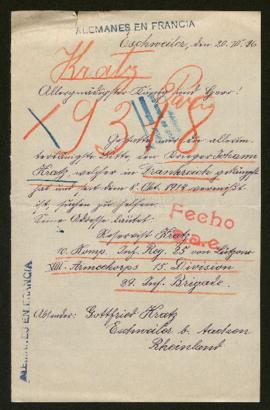 ALEMANES EN FRANCIA
Eschweiler, den 20. III. 16
Kratz Paris
Allergnädigster König und Herr!
193
Gestatte mir die allerun-
tertänigste Bitte, den Krieger Johann
Kratz, welcher in Frankreich gekämpft
hat und seit dem 8. Okt. 1914 vermißt
ist, suchen zu helfen.
Seine Adresse lautet:
Fecho
Reservist Kratz
10. Komp. Inf. Reg. 25 von Lützow
VIII. Armeekorps 15. Division
Inf. Brigade.
ALEMANES EN FRANCIA
Absender: Gottfried Kratz
Eschweiler b. Aachen
Rheinland